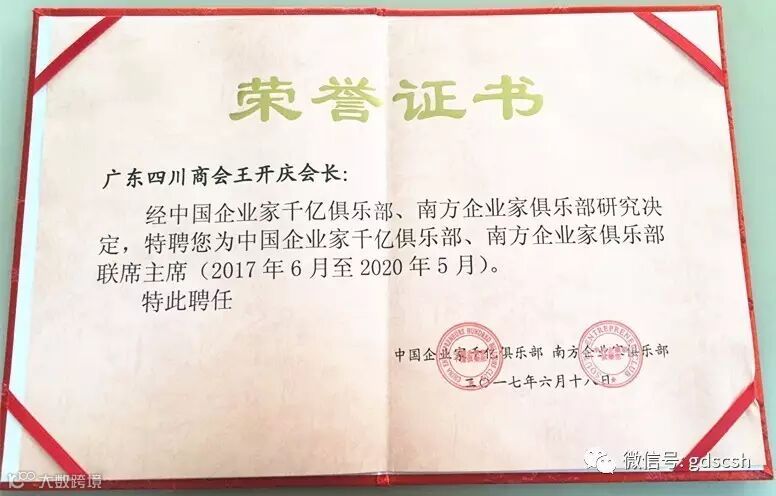 荣誉证书
广东四川商会王开庆会长：
经中国企业家千亿俱乐部、南方企业家俱乐部研究决
定，特聘您为中国企业家千亿俱乐部、南方企业家俱乐部
联席主席（2017年6月至2020年5月）。
特此聘任
中国企业家千亿俱乐部 南方企业家俱乐部
二〇一七年六月十八日
微信号: gdscsh
大数跨境